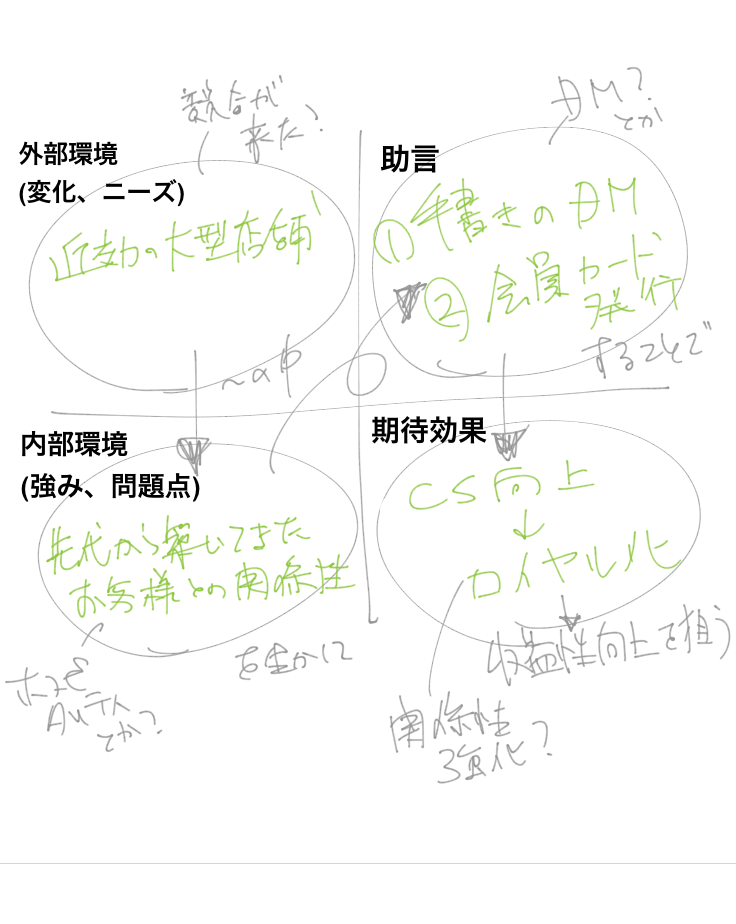 競合が
来た?
外部環境
(変化、ニーズ)
近効の大型店舗
〜の中
DM?
とか
助言
①手書きのDM
②会員カード
発行
することで
内部環境
(強み、問題点)
先代から築いてきた
お客様との関係性
を生かして
とか?
期待効果
CS向上
↓
ロイヤル化
収益性向上を狙う
関係性
強化?